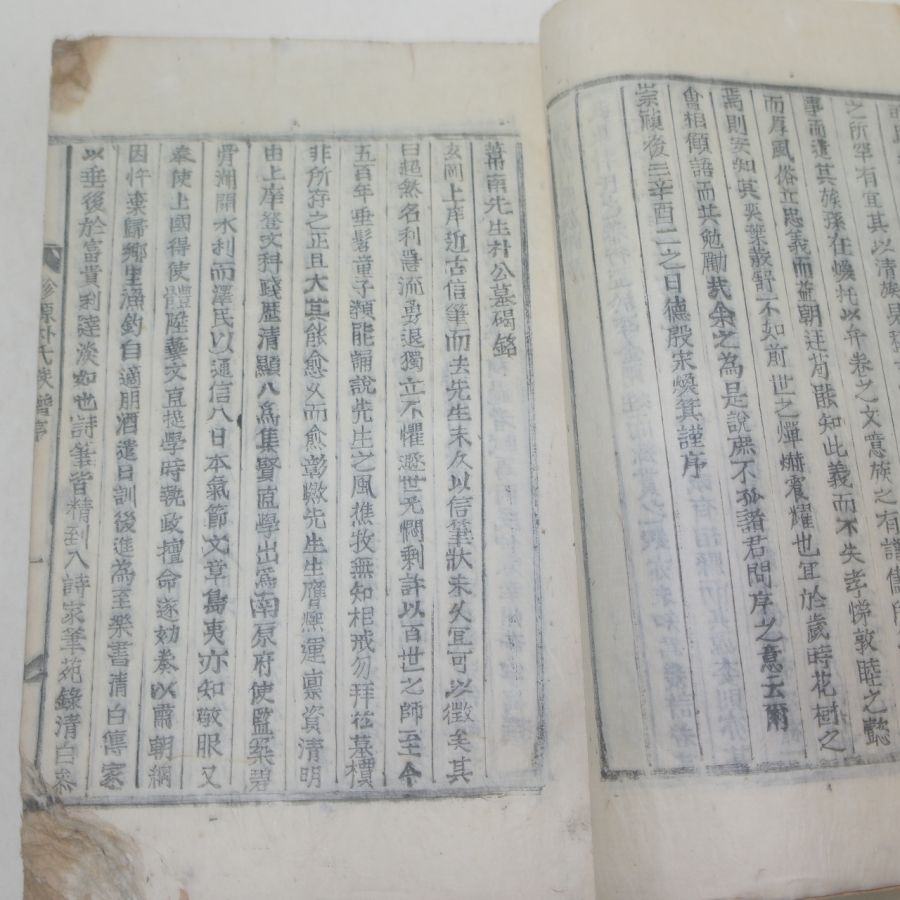 之所罕有宜其以清族
事而遣其族孫在煥托以弁卷之文意族之有譜儒
而厚風俗立忠義而益朝廷苟能知此義而不失孝悌敦睦之懿
焉則安知其奕葉蔵舒不如前世之燀爀賓耀也宜於歲時花樹之
會相傾語而共勉勵哉余之為是說庶不孤諸君問序之意云爾
崇禎後三辛酉二之日德殷宋煥箕謹序
葦南先生朴公墓碣銘
玄闕上庠近古信筆而去先生未久以信筆狀未久宜可以徵矣其
曰超然名利嘗流勇退獨立不懼遯世无悶剩許以百世之師至今
五百年垂髫童子類能誦說先生之風樵牧無知相戒勿拜從墓檟
非所謂之正且大其能愈久而愈彰繳先生生膺熙運禀資清明
由上庠登文科踐歷清顯八爲集賢直學出爲南原府使監築碧
骨湖開水利而澤民以通信八日本氣節文章島夷亦知敬服又
奉使上國得使體陸藝文直提學時執政擅命遂劾奏以肅朝綱
因忤棄歸鄉里漁釣自適朋酒遣日訓後進為至樂書清白傳家
以垂後於富貴利達淡如也詩筆皆精到入詩家筆苑錄清白叅
珍原朴氏族譜序
一